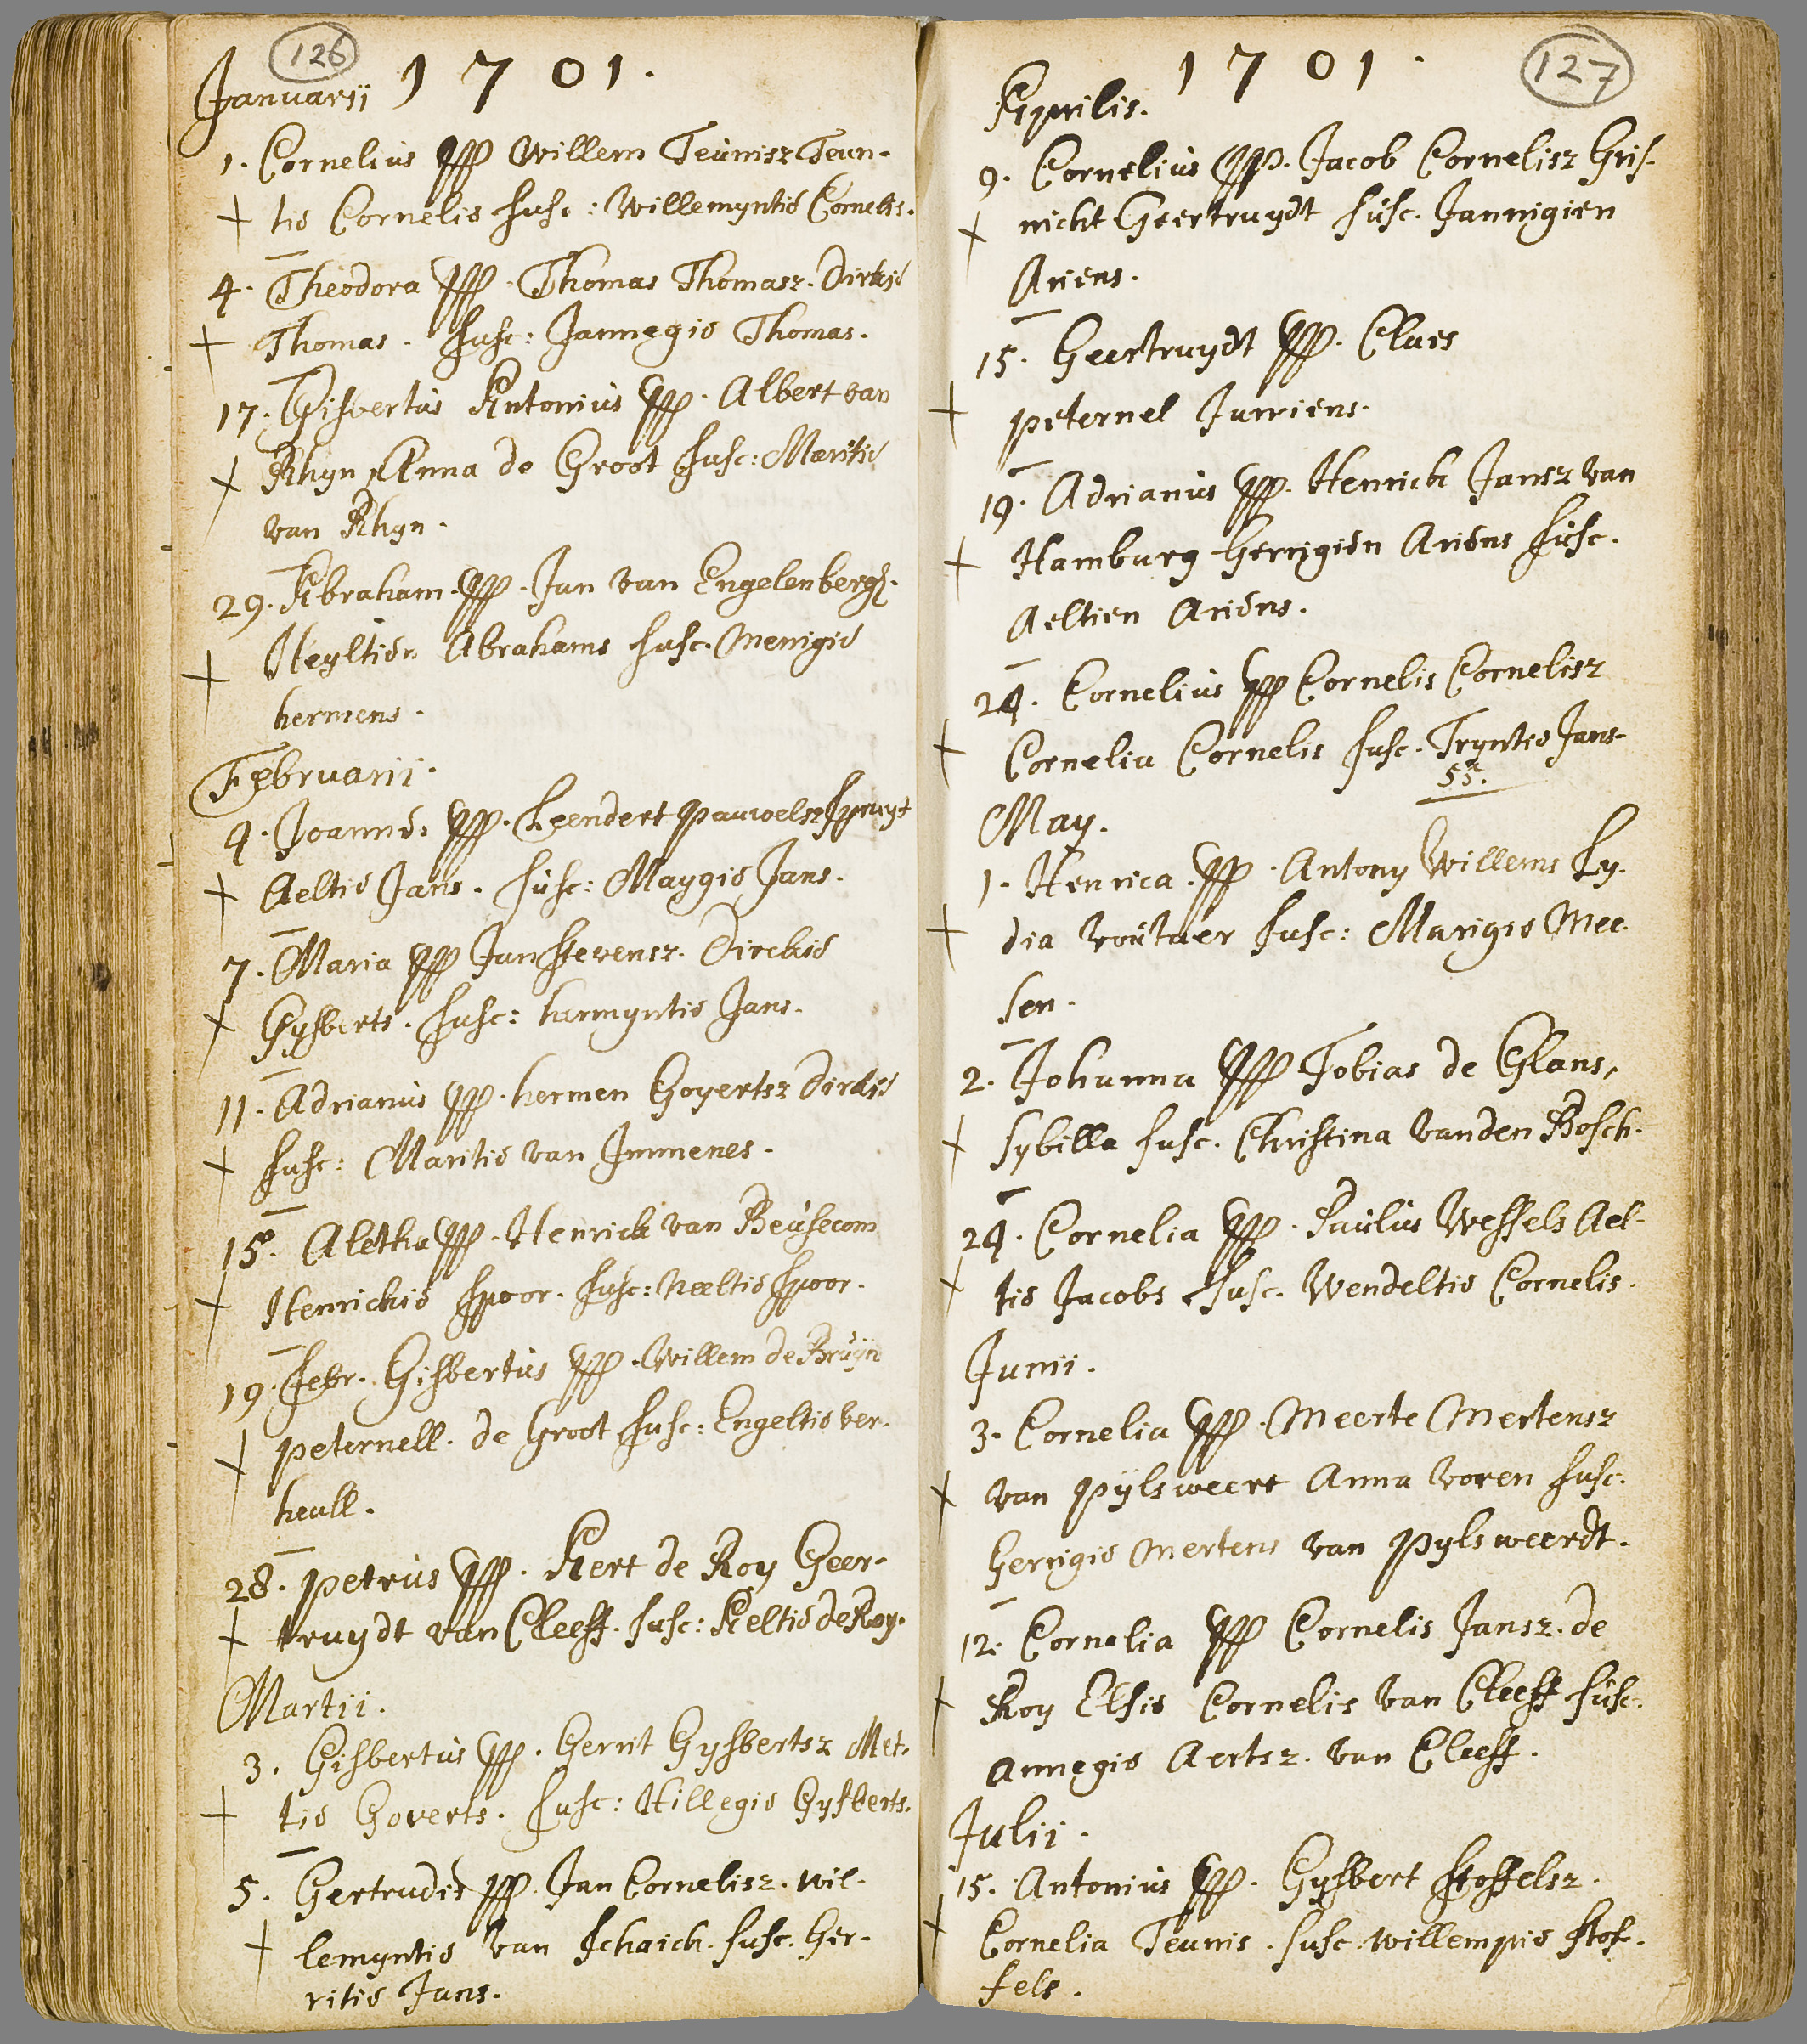 126
Januarii 1701.
1. Cornelius PPP Willem Teunisz Teun-
+ tie Cornelis susc: Willemyntie Cornelis.
4. Theodora PPP. Thomas Thomasz. Dirkje
+ Thomas. susc: Jannegie Thomas.
17. Gisbertus Antonius PPP. Albert van
+ Rhyn, Anna de Groot susc: Maritie
van Rhyn.
29. Abraham. PPP. Jan van Engelenbergh.
+ Heyltien Abrahams susc. Menigie
hermens.
Februarii.
4. Joannes PPP. Leendert pauwelsz spruyt
+ Aeltie Jans. susc: Maygie Jans.
7. Maria PPP Jan Stevensz. Dirckie
+ Gysberts. susc: harmyntie Jans.
11. Adrianus PPP. hermen Goyertsz Dirkje
+ susc: Maritie van Immenes.
15. Aletha PPP. Henrick van Beusecom
+ Henrickie spoor. susc: Neeltie spoor.
19. Febr. Gisbertus PPP. Willem de Bruÿn
+ peternell. de Groot susc: Engeltie ver-
heull.
28. petrus PPP. Aert de Roy Geer-
+ truydt van Cleeff. susc: Aeltie de Roy.
Martii.
3. Gisbertus PPP. Gerrit Gysbertsz Met-
+ tie Goverts. susc: Hillegie Gysberts.
5. Gertrudis PPP. Jan Cornelisz. wil-
+ lemyntie van Schaick. susc. Ger-
ritie Jans.
1701. 127
Aprilis.
9. Cornelius PPP. Jacob Cornelisz Gris-
+ nicht Geertruydt susc. Jannigien
Ariens.
15. Geertruydt PPP. Claes
+ peternel Jurriens.
19. Adrianus PPP. Henrick Jansz van
+ Hamburg Gerrigien Ariens susc.
Aeltien Ariens.
24. Cornelius PPP Cornelis Cornelisz
+ Cornelia Cornelis susc. Tryntie Jans-
sz.
May.
1. Henrica. PPP. Antony Willems Ly-
+ dia woutaer susc: Marigie Mee-
sen.
2. Johanna PPP Tobias de Glans,
+ sybilla susc. Christina vanden Bosch.
24. Cornelia PPP. Paulus Wessels Ael-
+ tie Jacobs susc. Wendeltie Cornelis.
Junii.
3. Cornelia PPP. Meerte Mertensz
+ van pÿlsweert Anna voren susc.
Gerrigie Mertens van pylsweerdt.
12. Cornelia PPP Cornelis Jansz. de
+ Roy Elsie Cornelis van Cleeff susc.
Annegie Aertsz. van Cleeff.
Julii.
15. Antonius PPP. Gysbert stoffelsz.
+ Cornelia Teunis. susc. willempie stof-
fels.